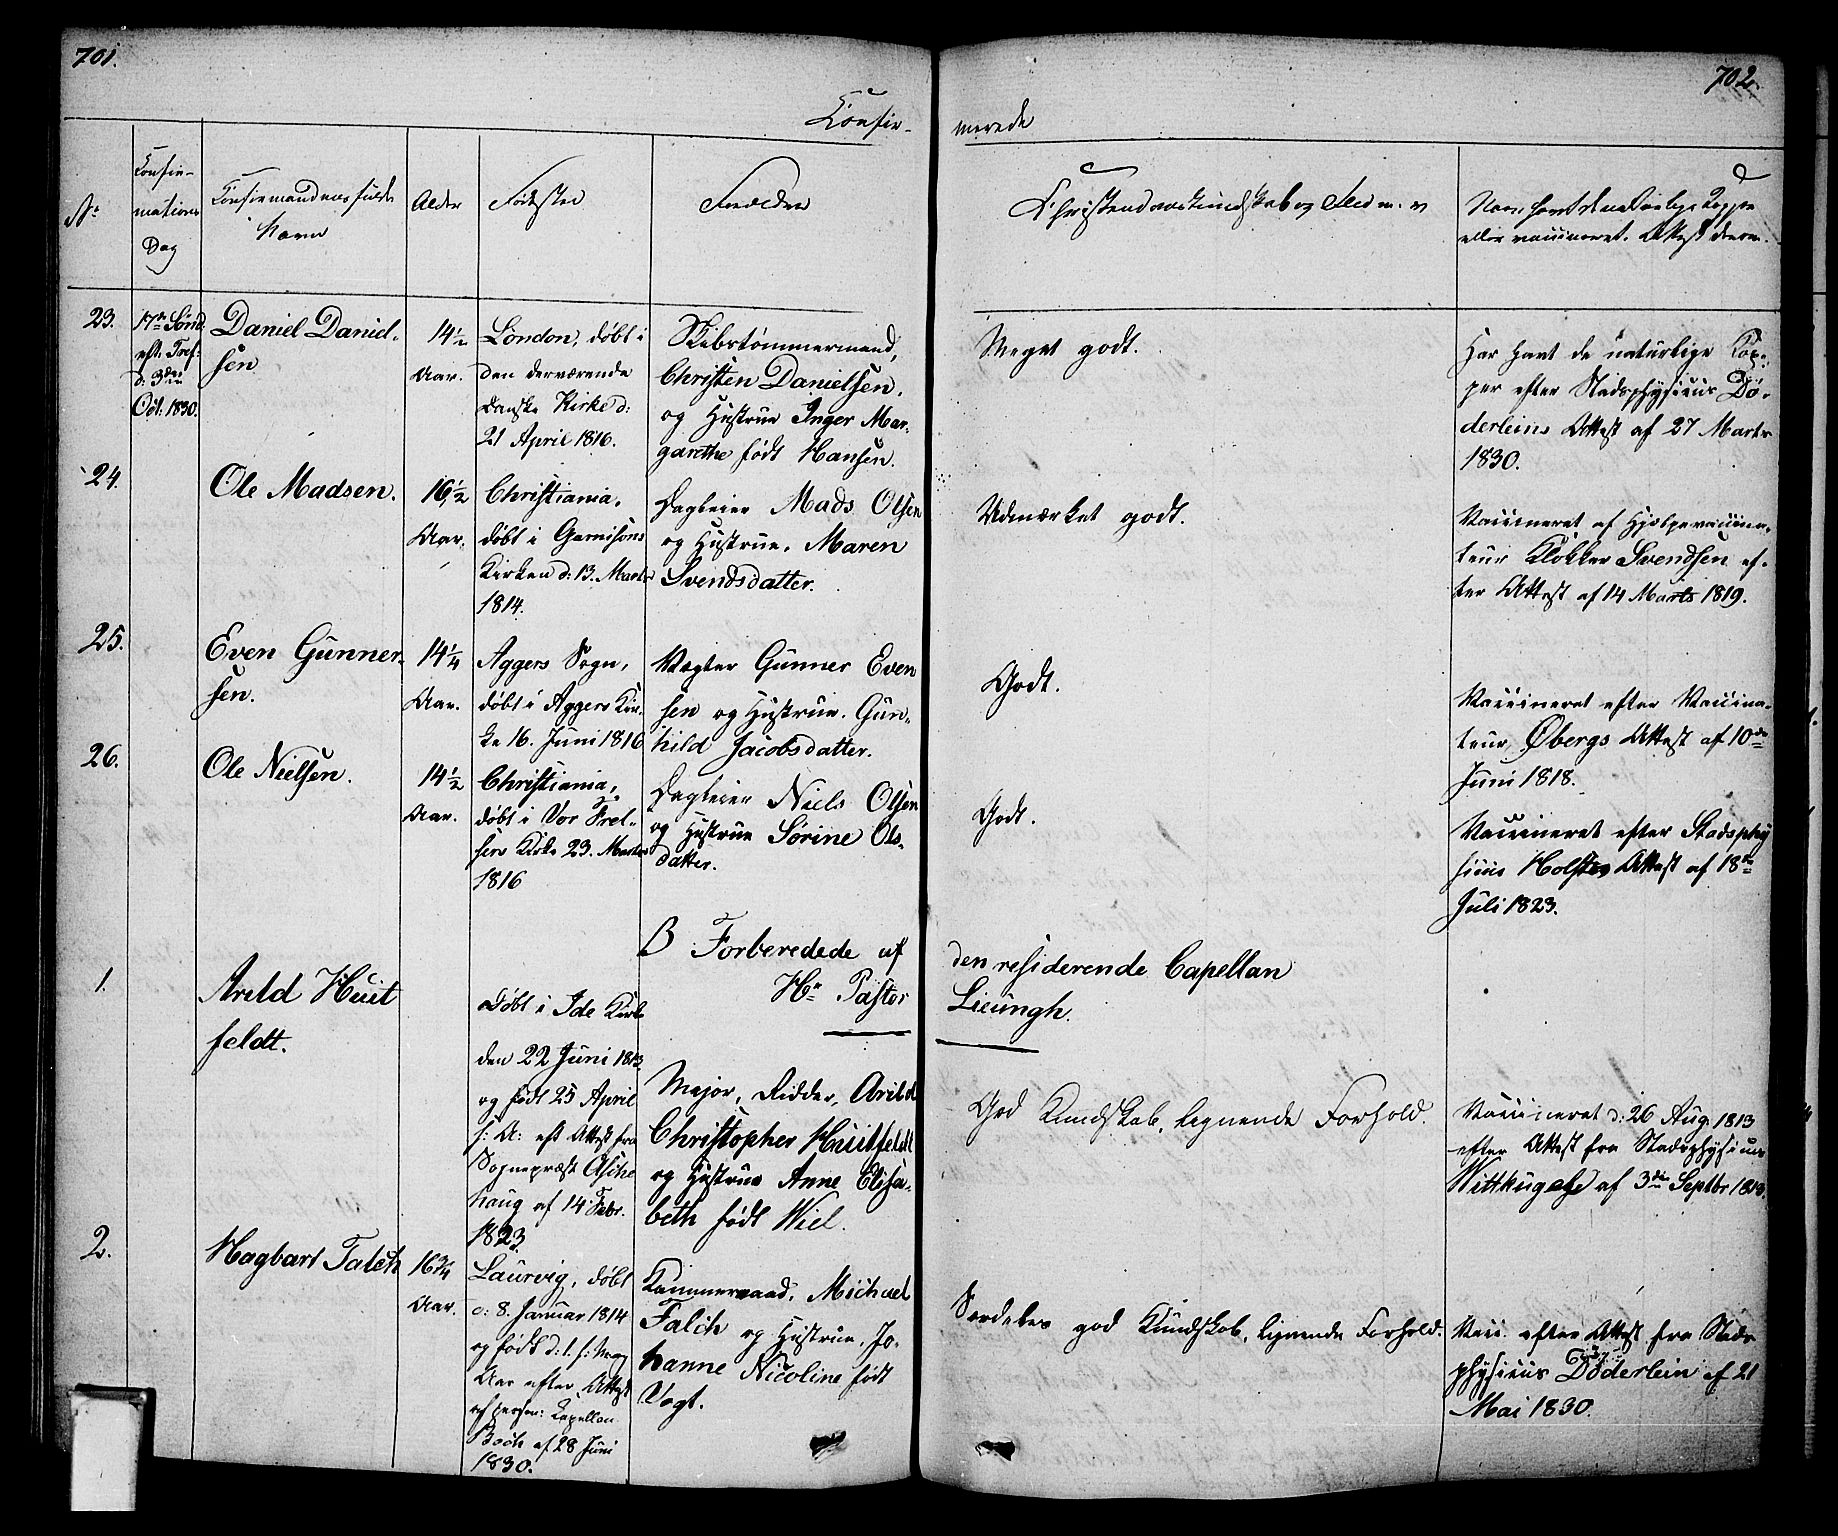 701.
702.
Confir-
merede
No.
Confir-
mations
Dag
Confirmandens fulde
Navn
Alder
Fødested
Forældre
Christendomskundskab og
Vaccineret. Attest derom.
23.
17de Sønd.
eft. Tref:
d: 3die
Oct. 1830.
Daniel Daniel-
sen
14 1/2
Aar.
London, døbt i
den derværende
Danske Kirke d:
21 April 1816.
Skibstømmermand,
Christen Danielsen,
og Hustrue Inger Mar-
garethe født Hansen.
Meget godt.
Har havt de naturlige Kop-
per efter Stadsphysicus Dø-
derleins Attest af 27 Marts
1830.
24.
Ole Madsen.
16 1/2
Aar.
Christiania,
døbt i Garnisons
Kirken d: 13. Marts
1814.
Dagleier Mads Olsen
og Hustrue, Maren
Svendsdatter.
Udmærket godt.
Vaccineret af Hjelpevaccina-
teur Klokker Svendsen ef-
ter Attest af 14 Marts 1819.
25.
Even Gunner-
sen.
14 1/4
Aar.
Aggers Sogn,
døbt i Aggers Kir-
ke 16. Juni 1816
Vægter Gunner Even
sen og Hustrue. Gun-
hild Jacobsdatter.
Godt.
Vaccineret efter Vaccina-
teur Øbergs Attest af 10de
Juni 1818.
26.
Ole Nielsen.
14 1/2
Aar.
Christiania,
døbt i Vor Frel-
sers Kirke 23. Marts
1816
Dagleier Niels Olsen
og Hustrue Sørine Ols-
datter.
Godt.
Vaccineret efter Stadsphy
sicus Holstes Attest af 18de
Juli 1823.
B Forberedede af
Hr Pastor
den residerende Capellan
Lieungh.
1.
Arild Huit
feldt.
Døbt i Ide Kirke
den 22 Juni 1813
og født 25 April
s: A: eft Attest fra
Sognepræst Asche
haug af 14 Febr.
1823.
Major, Ridder, Arild
Christopher Huitfeldt
og Hustrue Anne Elisa-
beth født Wiel.
God Kundskab, lignende Forhold.
Vaccineret d: 26 Aug. 1813
efter Attest fra Stadsphysicus
Wittkugel af 3die Septbr 1813.
2.
Hagbart Falch
16 3/4
Aar.
Laurvig, døbt
d: 8. Januar 1814
og født d: 1. s: M og
Aar efter Attest
af person: Kapellan
Boch af 28 Juni
1830.
Kammerraad, Michael
Falch og Hustrue, Jo-
hanne Nicoline født
Vogt.
Særdeles god Kundskab, lignende Forhold.
Vacc. efter Attest fra Stads
physicus Døderlein af 21
Mai 1830.